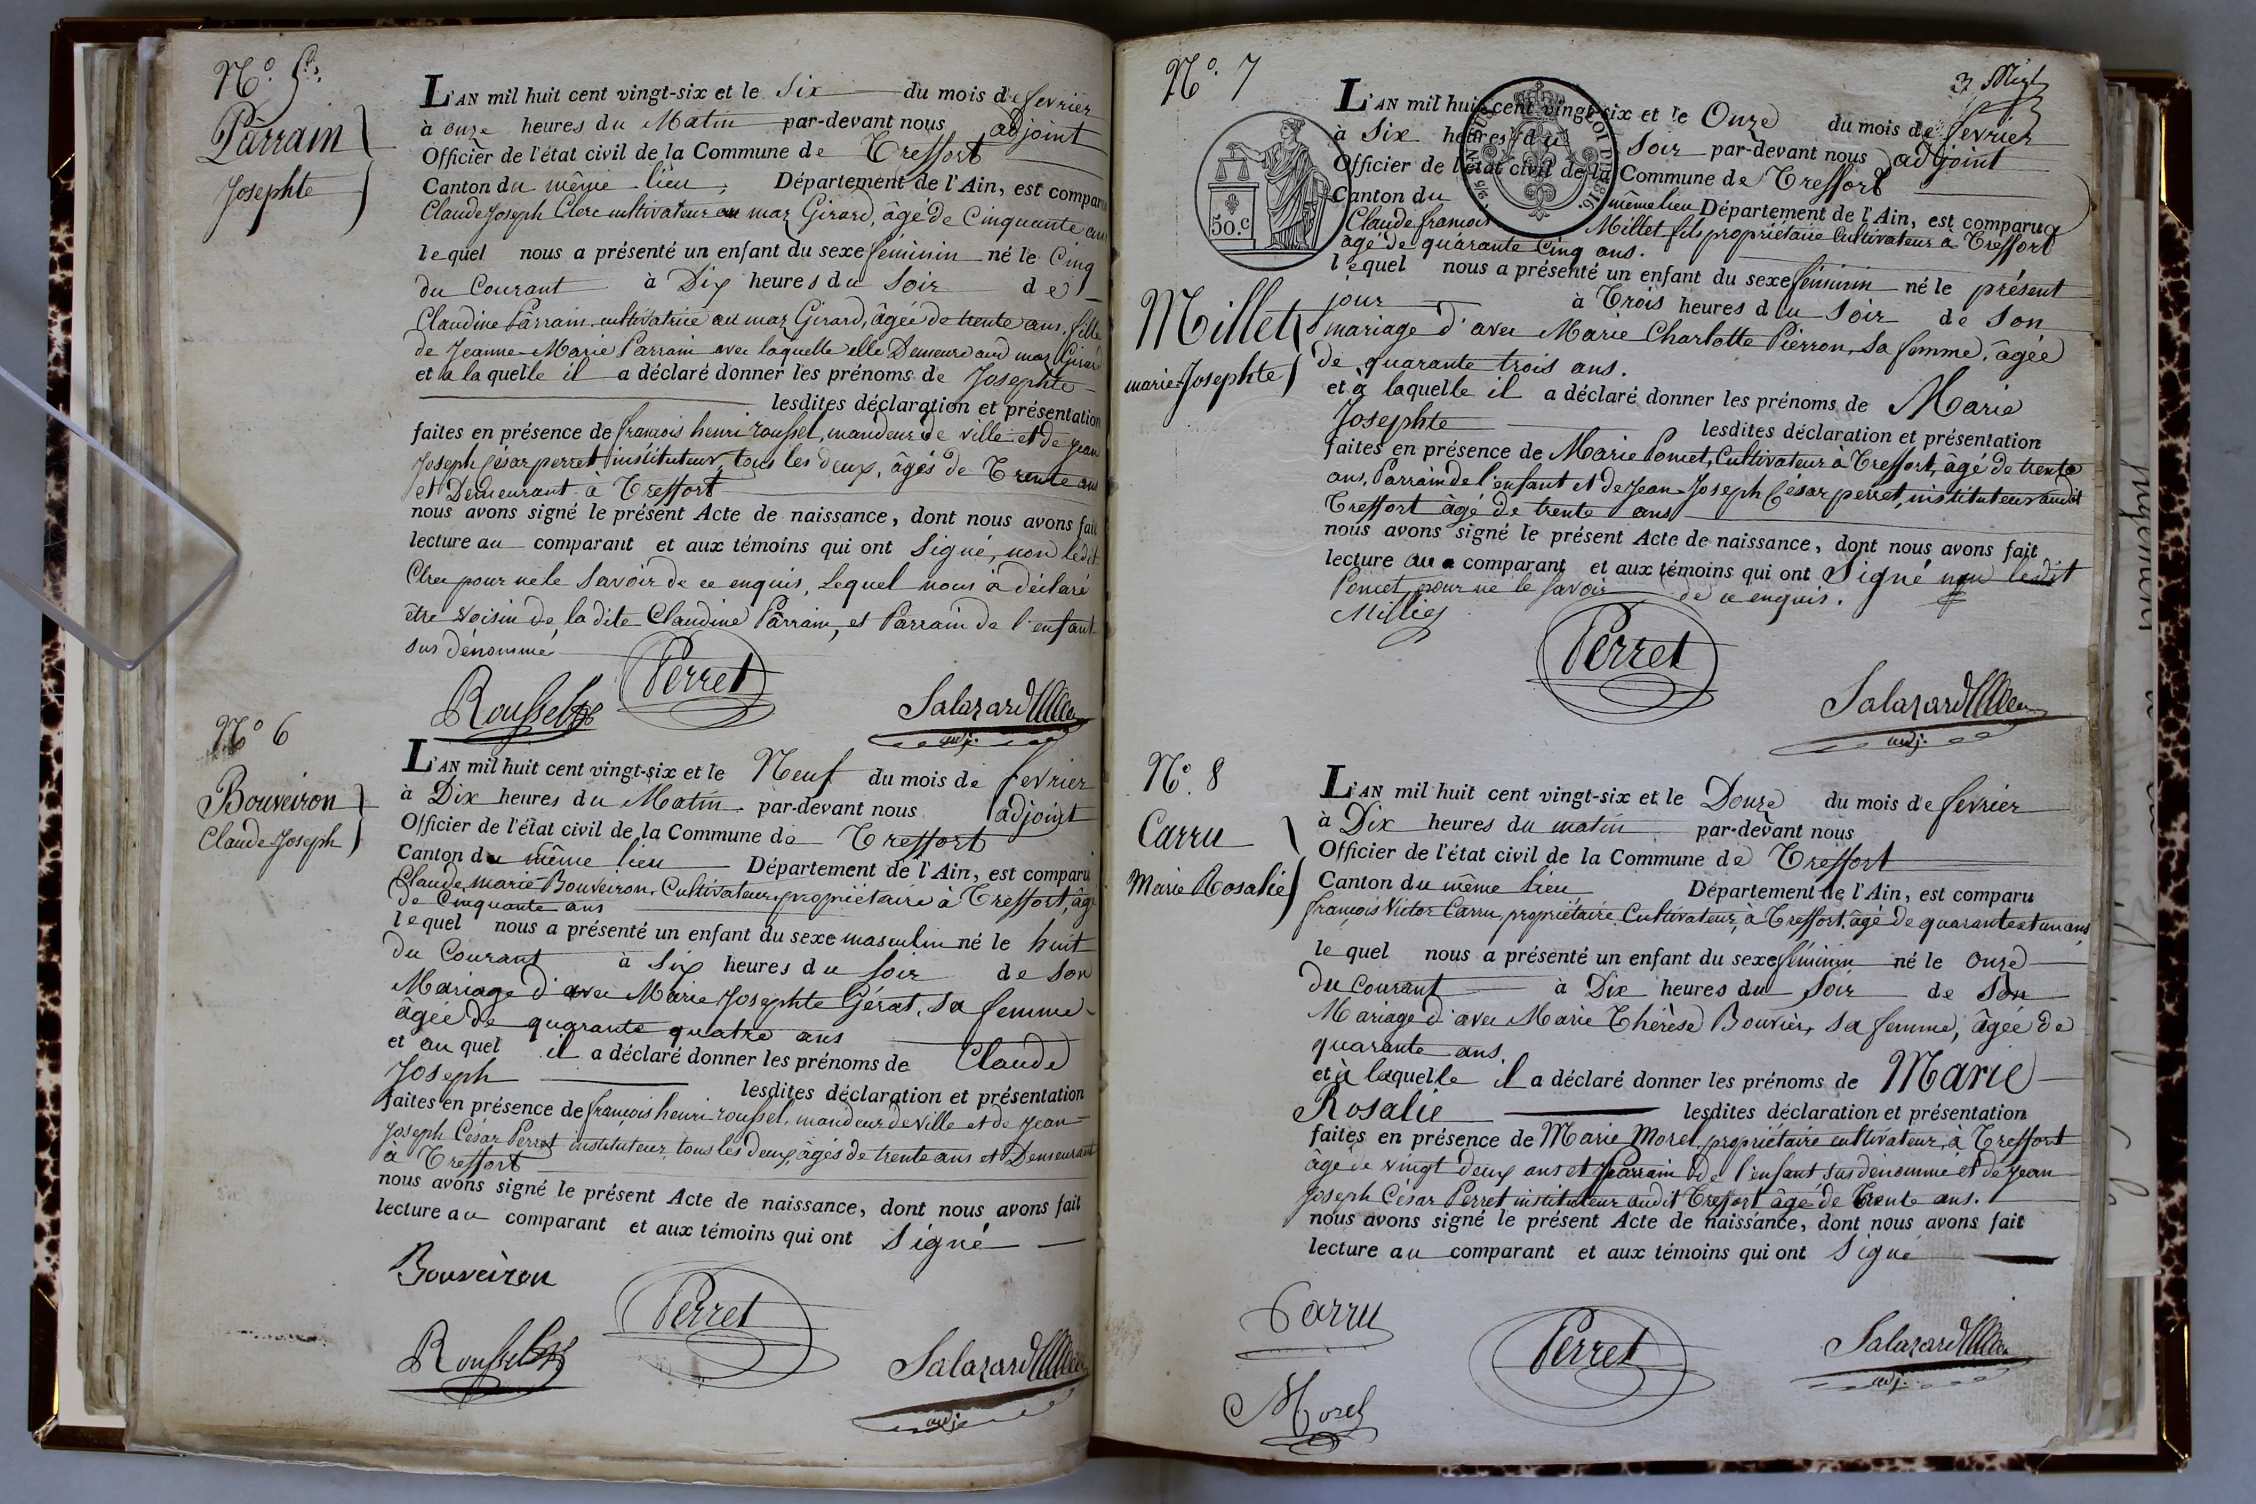 N.º 5.
Parrain
Josephte
L'AN mil huit cent vingt-six et le Six du mois de fevrier
à onze heures du Matin par-devant nous adjoint
Officier de l'état civil de la Commune de Treffort
Canton du même lieu, Département de l'Ain, est comparu
Claude Joseph Clerc cultivateur au maz Girard, âgé de Cinquante ans
lequel nous a présenté un enfant du sexe féminin né le Cinq
du Courant à Dix heures du Soir de
Claudine Parrain cultivatrice au maz Girard, âgée de trente ans, fille
de Jeanne-Marie Parrain avec laquelle elle Demeure aud maz Girard
et a laquelle il a déclaré donner les prénoms de Josephte
lesdites déclaration et présentation
faites en présence de françois henri roussel, mandeur de ville et de jean
Joseph César perret instituteur, tous les deux, âgés de Trente ans
et Demeurant à Treffort
nous avons signé le présent Acte de naissance, dont nous avons fait
lecture au comparant et aux témoins qui ont Signé, non ledit
Clerc pour ne le Savoir de ce enquis, Lequel nous a déclaré
être voisin de la dite Claudine Parrain, et Parrain de l'enfant
sus dénommé
Roussel Perret Salazard
adj.
N.º 6
Bouveiron
Claude-Joseph
L'AN mil huit cent vingt-six et le Neuf du mois de fevrier
à Dix heures du Matin par-devant nous adjoint
Officier de l'état civil de la Commune de Treffort
Canton du même lieu Département de l'Ain, est comparu
Claude marie Bouveiron, Cultivateur propriétaire à Treffort, âgé
de Cinquante ans
lequel nous a présenté un enfant du sexe masculin né le huit
du Courant à Six heures du soir de son
Mariage d'avec Marie Josephte Gérat, sa femme
âgée de quarante quatre ans
et au quel il a déclaré donner les prénoms de Claude
Joseph lesdites déclaration et présentation
faites en présence de françois henri roussel, mandeur de ville et de Jean
Joseph César Perret instituteur, tous les deux, âgés de trente ans et Demeurant
à Treffort
nous avons signé le présent Acte de naissance, dont nous avons fait
lecture au comparant et aux témoins qui ont Signé
Bouveiron
Perret
Roussel Salazard
adj.
N.º 7
L'AN mil huit cent vingt-six et le Onze du mois de fevrier
à Six heures du Soir par-devant nous adjoint
Officier de l'état civil de la Commune de Treffort
Canton du même lieu Département de l'Ain, est comparu
Claude françois Millet fils propriétaire Cultivateur à Treffort
âgé de quarante Cinq ans.
50.c
ROI DE 1816.
Millet
marie-Josephte
lequel nous a présenté un enfant du sexe féminin né le présent
jour à Trois heures du Soir de Son
mariage d'avec Marie Charlotte Pierron, Sa femme, âgée
de quarante trois ans.
et à laquelle il a déclaré donner les prénoms de Marie
Josephte lesdites déclaration et présentation
faites en présence de Marie Pomet, Cultivateur à Treffort, âgé de trente
ans, Parrain de l'enfant et de jean-Joseph César perret, instituteur audit
Treffort âgé de trente ans
nous avons signé le présent Acte de naissance, dont nous avons fait
lecture au comparant et aux témoins qui ont Signé non ledit
Pomet pour ne le savoir de ce enquis.
Perret
Salazard
adj.
N.º 8
Carru
Marie Rosalie
L'AN mil huit cent vingt-six et le Douze du mois de fevrier
à Dix heures du matin par-devant nous
Officier de l'état civil de la Commune de Treffort
Canton du même lieu Département de l'Ain, est comparu
françois Victor Carru, propriétaire Cultivateur, à Treffort, âgé de quarante et un ans
lequel nous a présenté un enfant du sexe féminin né le onze
du Courant à Dix heures du soir de Son
Mariage d'avec Marie Thérèse Bouvier, sa femme, âgée de
quarante ans.
et à laquelle il a déclaré donner les prénoms de Marie
Rosalie lesdites déclaration et présentation
faites en présence de Marie Morel propriétaire cultivateur, à Treffort
âgé de vingt deux ans et Parrain de l'enfant sus dénommé et de jean
Joseph César Perret instituteur audit Treffort âgé de trente ans.
nous avons signé le présent Acte de naissance, dont nous avons fait
lecture au comparant et aux témoins qui ont Signé
Carru
Perret Salazard
adj.
Morel